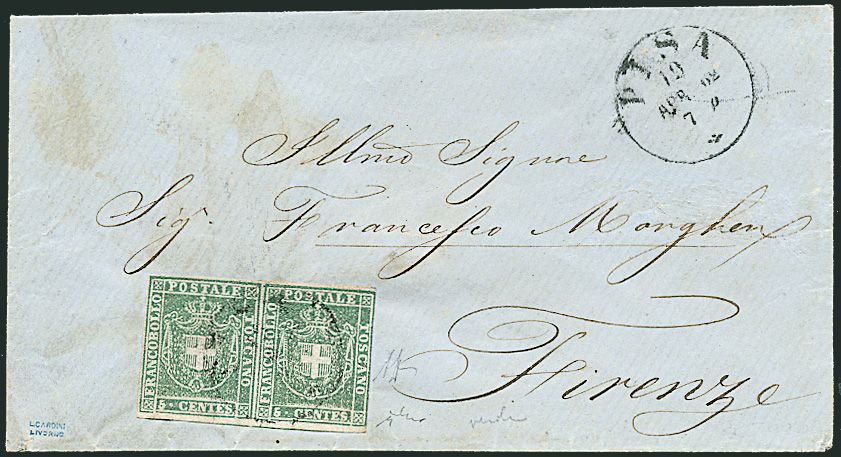 PISA
19
APR 62
7 P
Illmo Signore
Sig.r Francesco Morghen
Firenze
POSTALE
FRANCOBOLLO
TOSCANO
5 - CENTES.
POSTALE
FRANCOBOLLO
TOSCANO
5 - CENTES.
L. CARDINI
LIVORNO